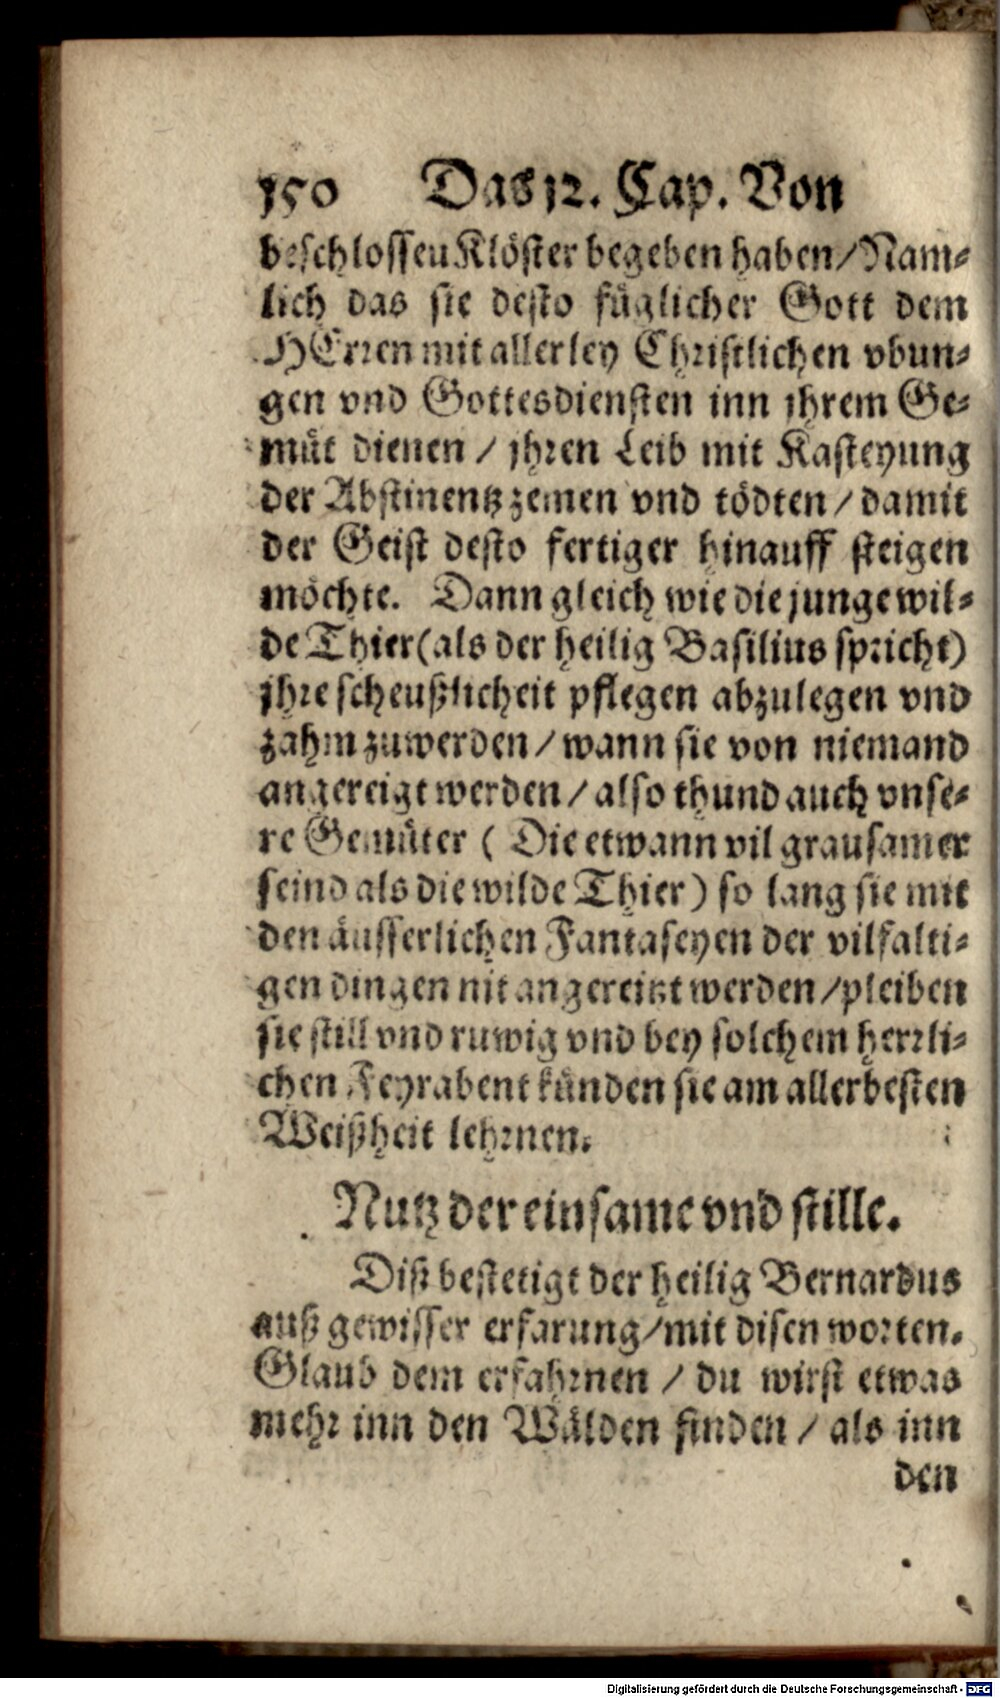 150 Das 12. Cap. Von
beschlossen Klöster begeben haben/Nam-
lich das sie desto füglicher Gott dem
HErren mit allerley Christlichen vbun-
gen vnd Gottesdiensten inn jhrem Ge-
müt dienen / jhren Leib mit Kasteyung
der Abstinentz zemen vnd tödten / damit
der Geist desto fertiger hinauff steigen
möchte. Dann gleich wie die junge wil-
de Thier (als der heilig Basilius spricht)
jhre scheußlicheit pflegen abzulegen vnd
zahm zuwerden / wann sie von niemand
angereigt werden / also thund auch vnse-
re Gemüter ( Die etwann vil grausamer
seind als die wilde Thier ) so lang sie mit
den äusserlichen Fantaseyen der vilfalti-
gen dingen nit angereitzt werden /pleiben
sie still vnd ruwig vnd bey solchem herrli-
chen Feyrabent künden sie am allerbesten
Weißheit lehrnen.
Nutz der einsame vnd stille.
Diß bestetigt der heilig Bernardus
auß gewisser erfarung/mit disen worten.
Glaub dem erfahrnen / du wirst etwas
mehr inn den Wälden finden / als inn
den
Digitalisierung gefördert durch die Deutsche Forschungsgemeinschaft - DFG